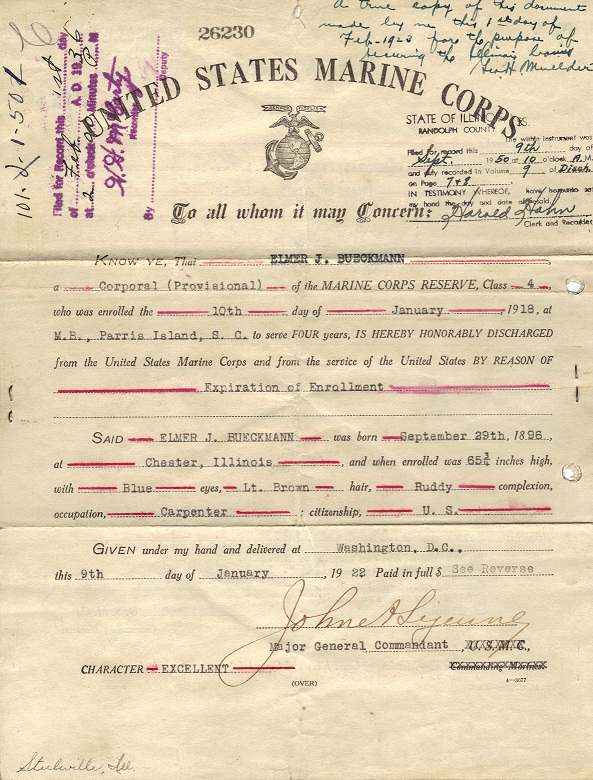 A true copy of this document
made by me this 1st day of
Feb. 1923 for the purpose of
securing the Illinois bonus
Geo H Muelder
26230
UNITED STATES MARINE CORPS
Filed for Record this 1st day
of Feb A.D. 1936
at 2 o'clock Minutes P M
By Deputy
STATE OF ILLINOIS, SS.
RANDOLPH COUNTY
The within instrument was
filed for record this 9th day of
Sept. 1950 at 10 o'clock A.M.
and duly recorded in Volume 9 of Disch.
on Page 748.
IN TESTIMONY WHEREOF, I have hereunto set
my hand the day and date aforesaid.
Harold Hahn
Clerk and Recorder
To all whom it may Concern:
KNOW YE, That ELMER J. BUECKMANN
a Corporal (Provisional) of the MARINE CORPS RESERVE, Class 4,
who was enrolled the 10th day of January, 1918, at
M.B., Parris Island, S. C. to serve FOUR years, IS HEREBY HONORABLY DISCHARGED
from the United States Marine Corps and from the service of the United States BY REASON OF
Expiration of Enrollment
SAID ELMER J. BUECKMANN was born September 29th, 1896,
at Chester, Illinois, and when enrolled was 65¾ inches high,
with Blue eyes, Lt. Brown hair, Ruddy complexion,
occupation, Carpenter; citizenship, U. S.
GIVEN under my hand and delivered at Washington, D.C.,
this 9th day of January, 1922 Paid in full $ See Reverse
John A Lejeune
Major General Commandant, U.S.M.C.,
Commanding Marines.
CHARACTER EXCELLENT
(OVER)
Steeleville, Ill.